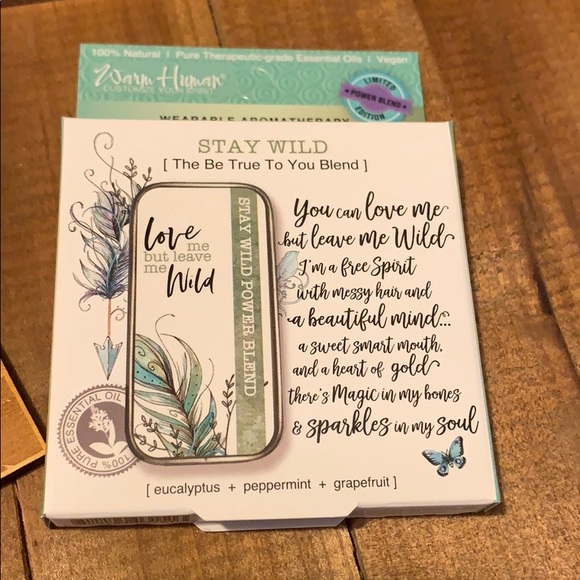 100% Natural | Pure Therapeutic-grade Essential Oils | Vegan
Warm Human®
CUSTOMIZE YOUR SPIRIT
LIMITED
POWER BLEND
EDITION
WEARABLE AROMATHERAPY
STAY WILD
[ The Be True To You Blend ]
Love
me
but leave
me
Wild
STAY WILD POWER BLEND
You can love me
but leave me Wild
I'm a free Spirit
with messy hair and
a beautiful mind...
a sweet smart mouth,
and a heart of gold
there's Magic in my bones
& sparkles in my soul
100% PURE ESSENTIAL OIL
[ eucalyptus + peppermint + grapefruit ]